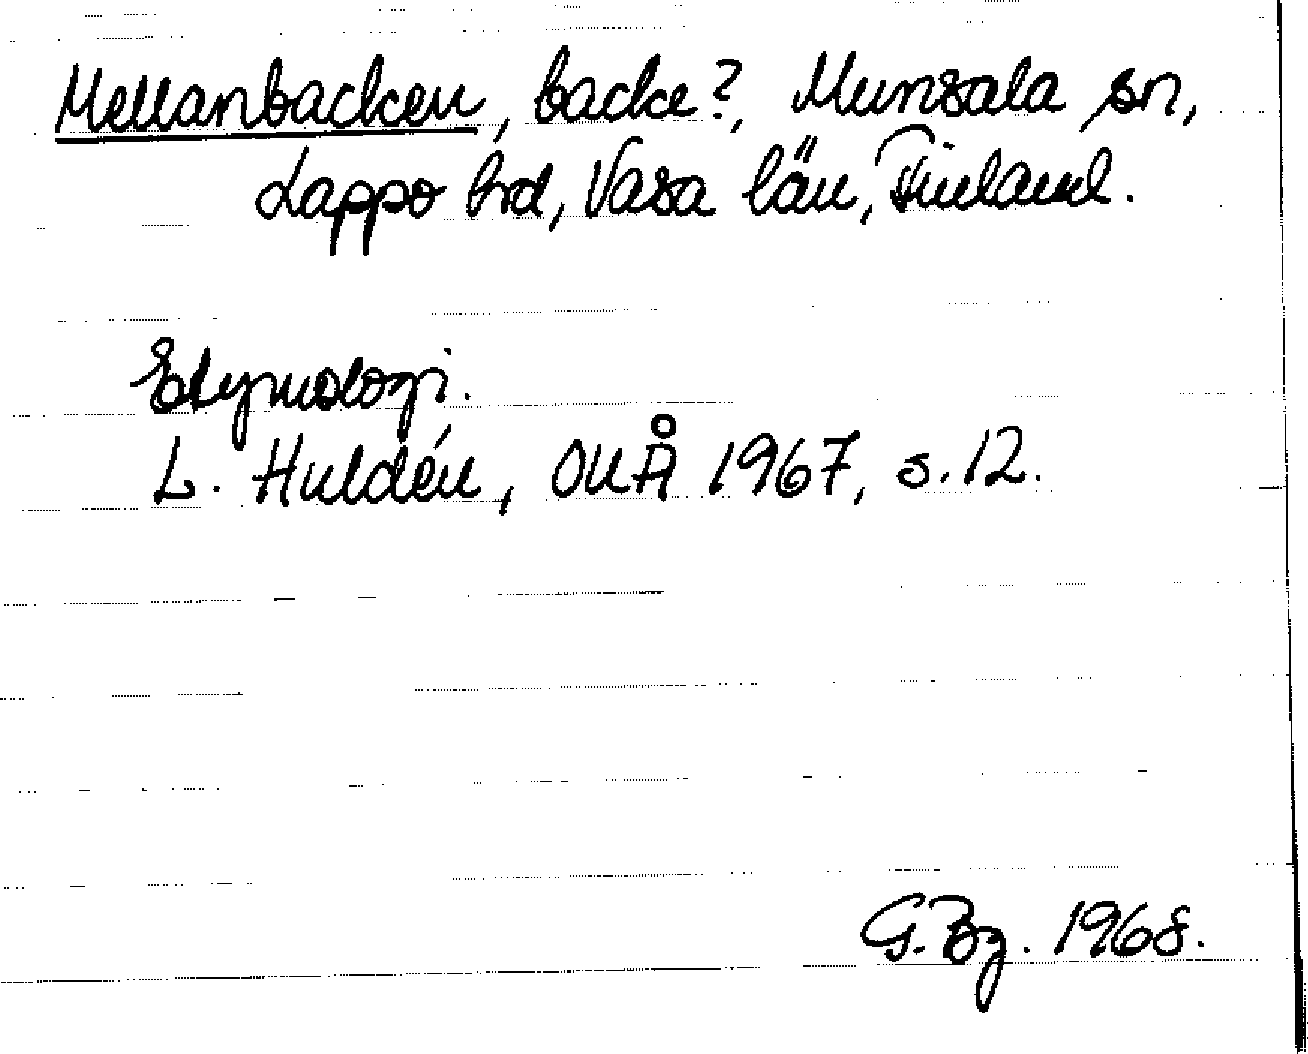 Mellanbacken, backe?, Munsala sn,
Lappo hrd, Vasa län, Finland.
Etymologi.
L. Huldén, OUÅ 1967, s. 12.
G. Bg. 1968.